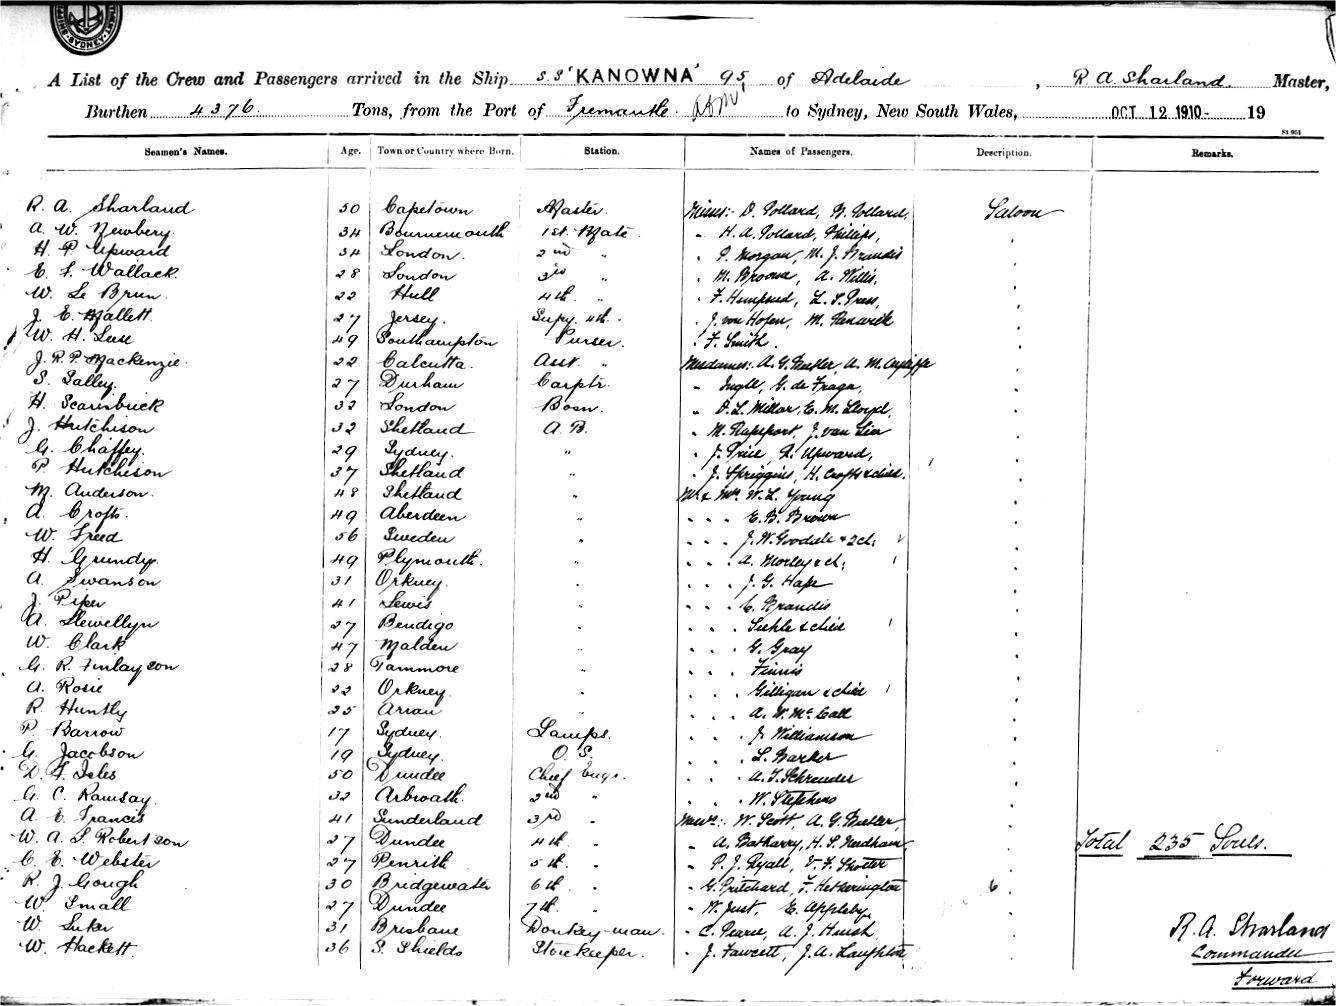 SYDNEY
A List of the Crew and Passengers arrived in the Ship S.S. 'KANOWNA' 95 of Adelaide, R. A. Sharland. Master,
Burthen 4376. Tons, from the Port of Fremantle to Sydney, New South Wales, OCT 12 1910- 19
Seamen's Names. Age. Town or Country where Born. Station. Names of Passengers. Description. Remarks.
R. A. Sharland 50 Capetown Master. Misses:- D. Pollard, N. Pollard, Saloon
A. W. Newbery. 34 Bournemouth 1st. Mate. " H. A. Pollard, Phillips,
H. P. Upward 34 London. 2nd " " P. Morgan, M. J. Brandis
E. F. Wallack. 28 London 3rd " " M. Broome, A. Willis,
W. Le Brun. 22 Hull 4th. " " F. Hempsed, L. S. Press,
J. E. Mallett. 27 Jersey. Supy. 4th. " J. von Hofen, M. Renwick
W. H. Luse 49 Southampton Purser. " F. Smith.
J. R. P. Mackenzie. 22 Calcutta. Asst. " Mesdames:- A. G. Butler, A. M. Ayliffe
S. Salley. 27 Durham Carptr. " Ingle, G. de Fraga,
H. Scarisbrick 32 London Bosn. " D. L. Millar, E. M. Lloyd,
J. Hutchison 32 Shetland A. B. " M. Rappeport, J. van Lier
G. Chaffey. 29 Sydney. " " J. Price, R. Upward,
P. Hutchison 37 Shetland " " J. Spriggins, H. Crofts & child.
M. Anderson. 48 Shetland " Mr. & Mrs. W. L. Young
A. Crofts. 49 Aberdeen " " " " E. B. Brown
W. Freed 56 Sweden " " " " J. W. Goodale & 2 ch:
H. Grundy. 49 Plymouth. " " " " A. Morley & ch:
A. Swanson 31 Orkney. " " " " J. G. Hape
J. Piper 41 Lewis " " " " C. Brandis
A. Llewellyn 27 Bendigo " " " " Siehle & child
W. Clark 47 Maldon " " " " G. Gray
G. R. Finlayson 28 Tammore " " " " Finnis
A. Rosie 22 Orkney. " " " " Gilligan & child
R. Huntly 25 Arran " " " " A. W. McCall
P. Barrow 17 Sydney. Lamps. " " " J. Williamson
G. Jacobson 19 Sydney. O. S. " " " L. Barker
D. F. Isles 50 Dundee Chief Engr. " " " A. T. Schreuder
G. C. Ramsay. 32 Arbroath. 2nd " " " " W. Stephens
A. E. Francis 41 Sunderland 3rd " Messrs:- W. Scott, A. G. Butler,
W. A. S. Robertson 27 Dundee 4th. " " A. Batharry, H. S. Needham, Total 235 Souls.
C. E. Webster 27 Penrith 5th. " " P. J. Ryall, V. F. Shotter
R. J. Gough 30 Bridgewater 6th. " " G. Pritchard, F. Hetherington
W. Small 27 Dundee 7th. " " W. Just, E. Appleby,
W. Suker 31 Brisbane Donkey-man. " C. Pearce, A. J. Hirsh, R. A. Sharland
W. Hackett. 36 S. Shields Storekeeper. " J. Fawcett, J. A. Laughton Commander
Forward